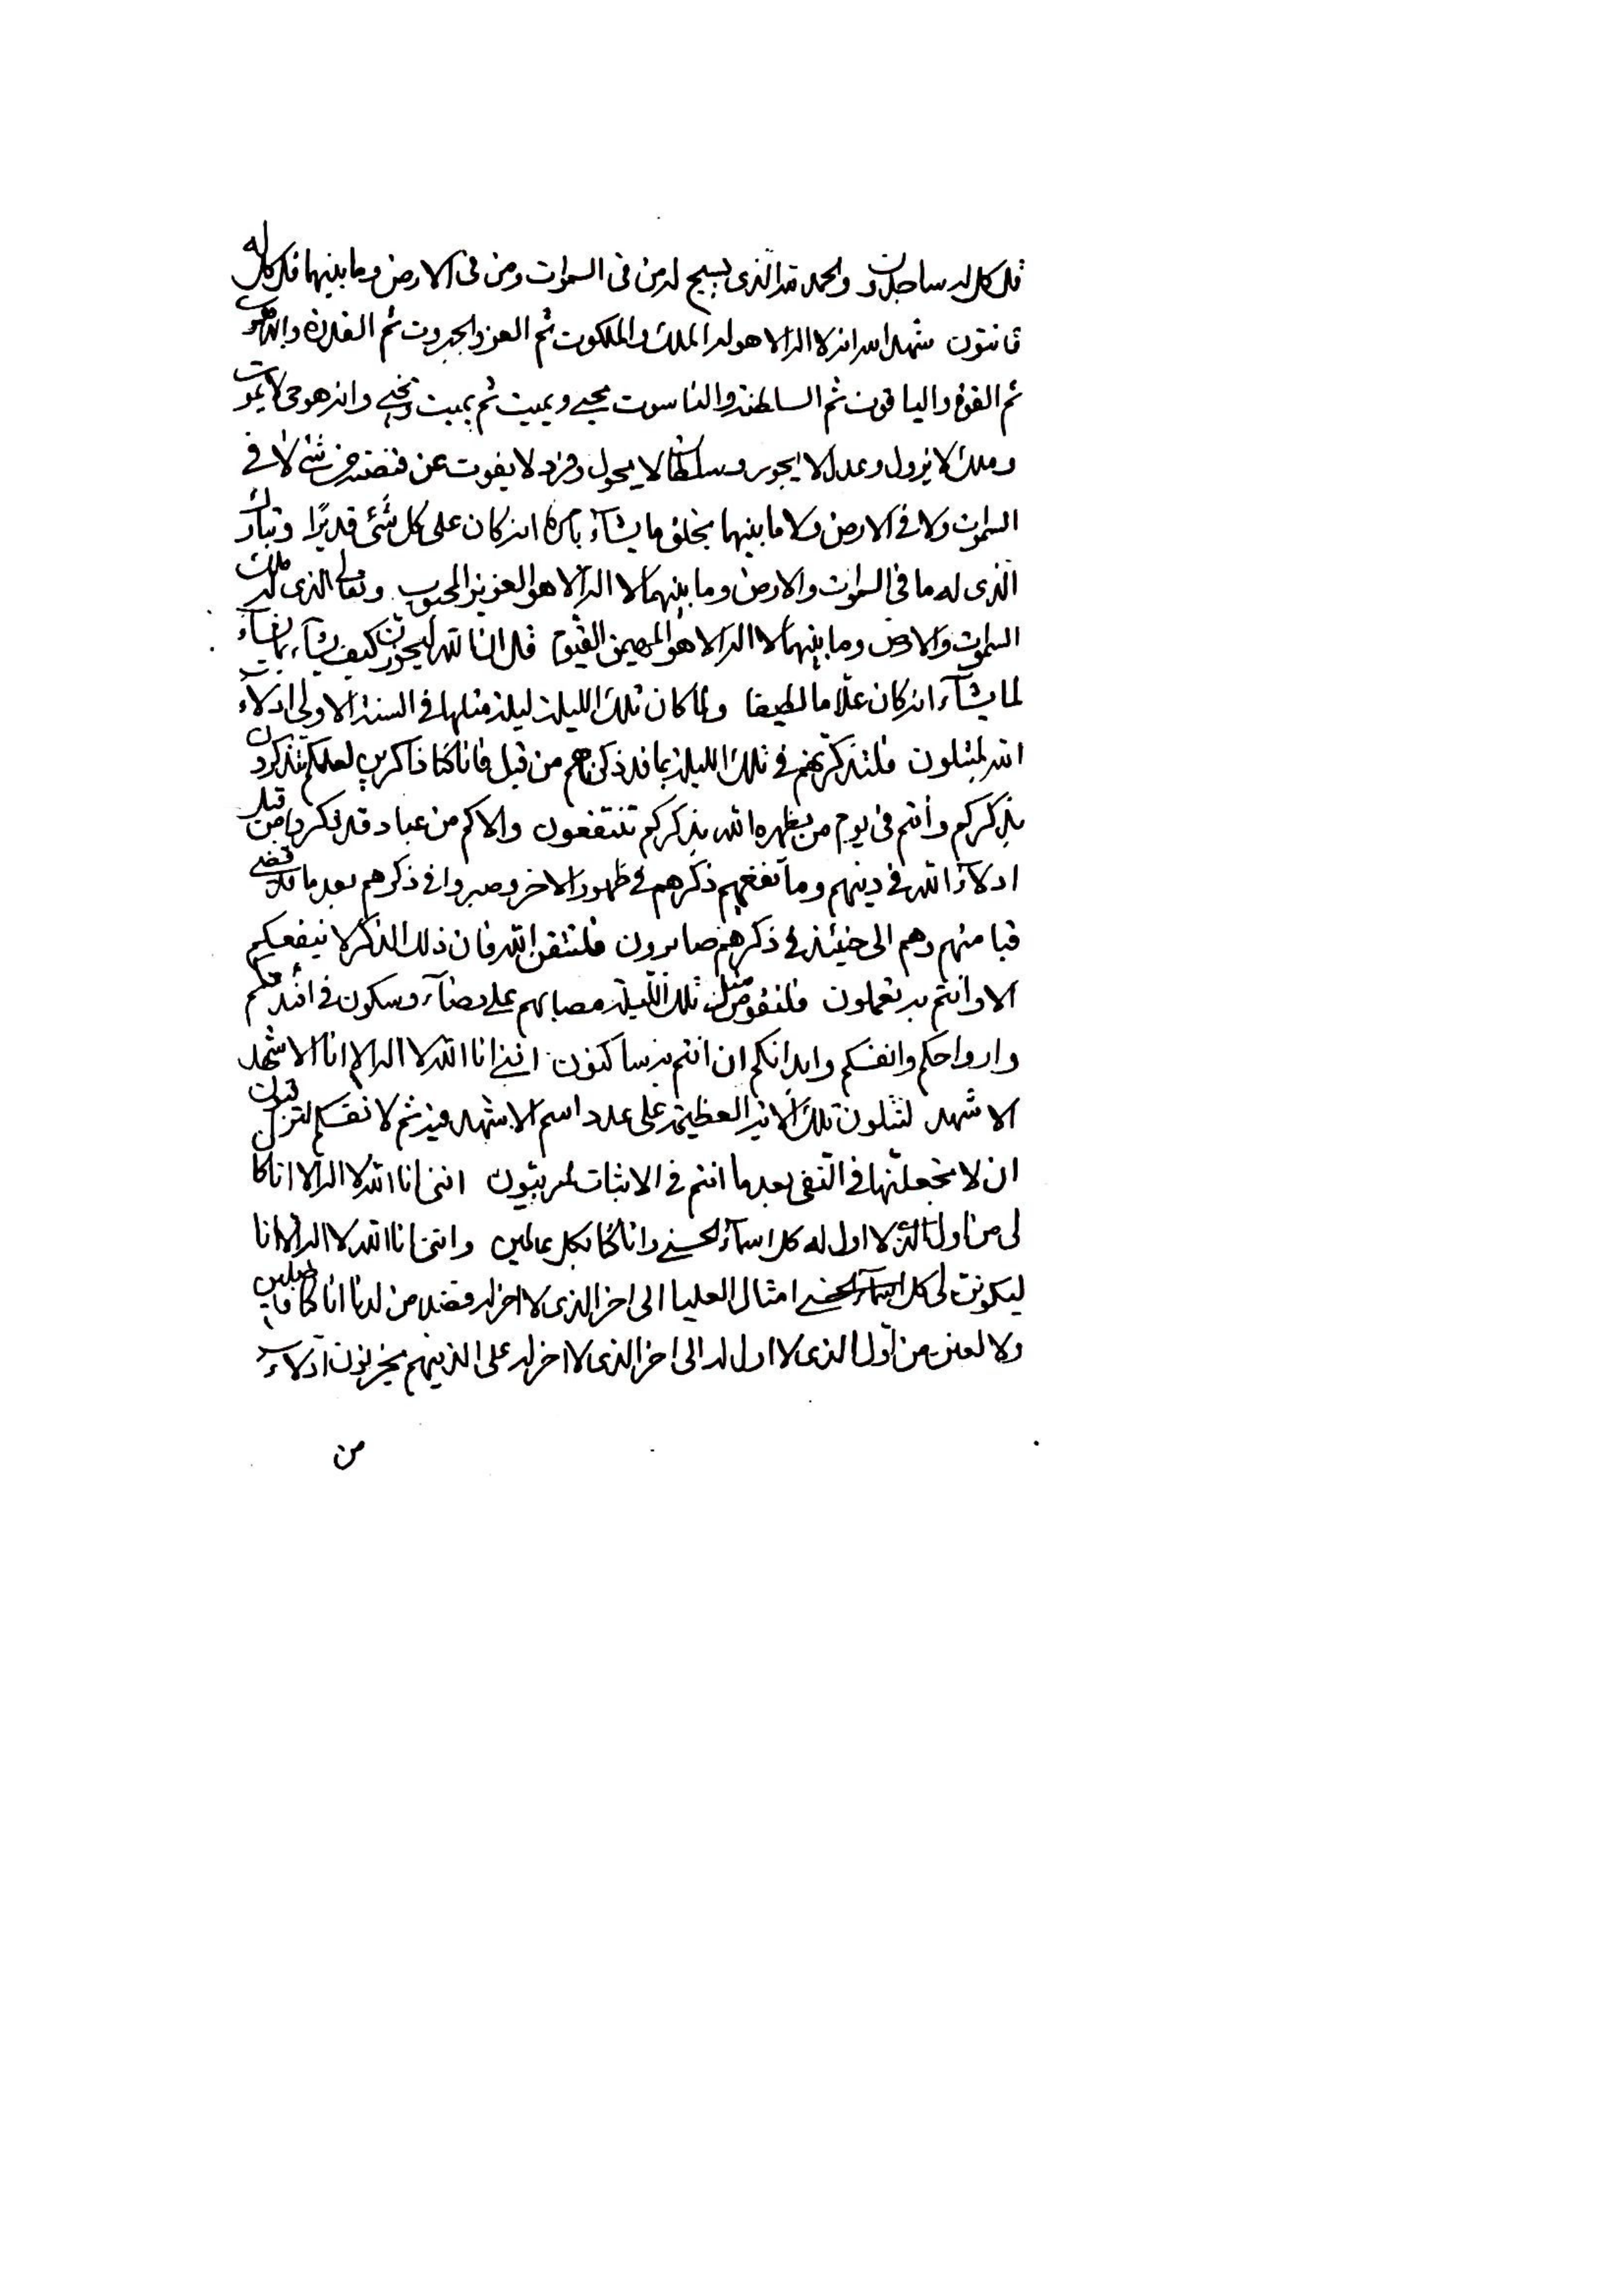 قل كل له ساجدون والحمد لله الذى يسبح له من فى السموات ومن فى الارض وما بينهما قل كل له
قانتون شهد الله انه لا اله الا هو له الملك والملكوت ثم العز والجبروت ثم القدرة واللاهوت
ثم القوة والياقوت ثم السلطنة والناسوت يحيى ويميت ثم يميت ويحيى وانه هو حى لا يموت
وملك لا يزول وعدل لا يجور وسلطان لا يحول وفرد لا يفوت عن قبضته من شئ لا فى
السموات ولا فى الارض ولا ما بينهما يخلق ما يشآء بامره انه كان على كل شئ قديرًا وتبارك
الذى له ما فى السموات والارض وما بينهما لا اله الا هو العزيز المحبوب وتعالى الذى له ملك
السموات والارض وما بينهما لا اله الا هو المهيمن القيوم قل ان الله كيف يشآء بما يشآء
لما يشآء انه كان علّاما لطيفا ولما كان تلك الليلة ليلة مثلها فى السنة الاولى ادلاء
الله فلتذكرنهم فى تلك الليلة بما قد ذكرناهم من قبل فانا كنا ذاكرين لعلكم تتذكرون
بذكركم وأنتم فى يوم من يظهره الله بذكركم تنتفعون والا كم من عباد قد ذكروا من قبل
ادلاء الله فى دينهم وما نفعهم ذكرهم فى ظهور الاخر وصبروا فى ذكرهم بعد ما قد قضى
منهم وهم الى حينئذ فى ذكرهم صابرون فلتتقن الله فان ذلك الذكر لا ينفعكم
الا وانتم به تعملون مثل تلك الليلة مصابهم على رضآء وسكون فى افئدتكم
وارواحكم وانفسكم وابدانكم ان انتم به ساكنون اننى انا الله لا اله الا انا الاشهد
الاشهد لتتلون تلك الاية العظيمة على عدد اسم الاشهد فيه ثم لانفسكم لتراقبون
ان لا تجعلنها فى النفى بعد ما انتم فى الاثبات اننى انا الله لا اله الا انا كا
لى من اول الذى لا اول له كل اسمآء الحسنى وانا كنا بكل عالمين واننى انا الله لا اله الا انا
ليكونن لى كل امثال العليا الى اخر الذى لا اخر له فضلا من لدنا انا كنا فاضلين
ولالعنن من اول الذى لا اول له الى اخر الذى لا اخر له على الذينهم يحزنون ادلاء
من